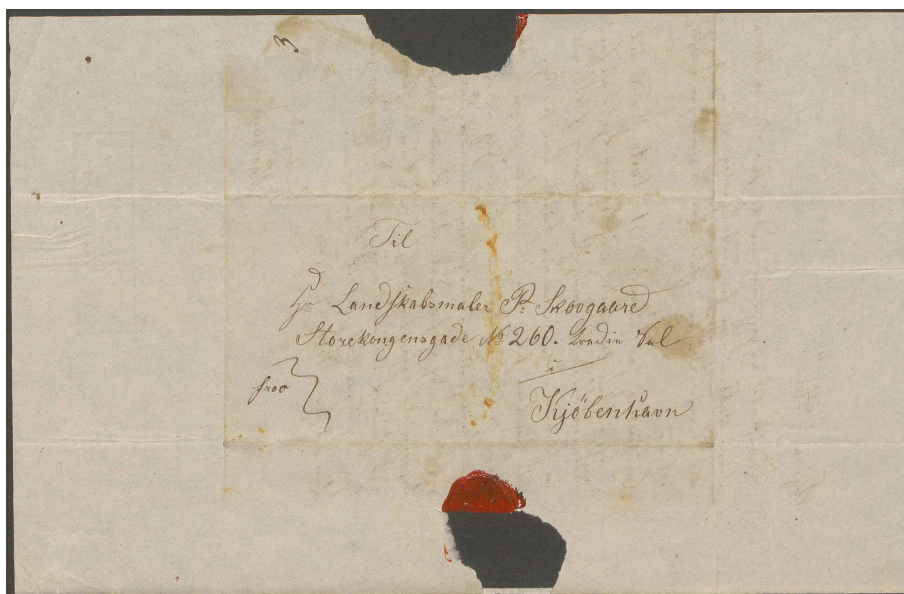 3
Til
Hr Landskabsmaler P. Skovgaard
Storekongensgade № 260. Tredie Sal
i
frco
Kjöbenhavn